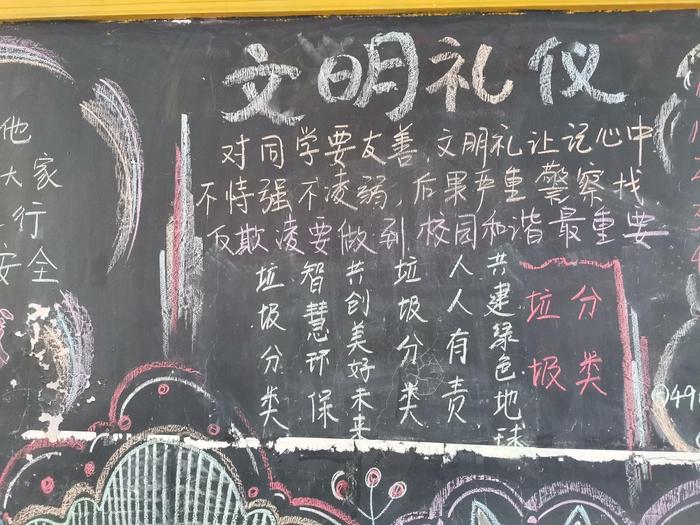 文明礼仪
对同学要友善,文明礼让记心中
不恃强不凌弱,后果严重警察找
反欺凌要做到校园和谐最重要
垃圾分类
智慧环保
共创美好未来
垃圾分类
人人有责
共建绿色地球
垃圾
分类
他
大家
行
安全